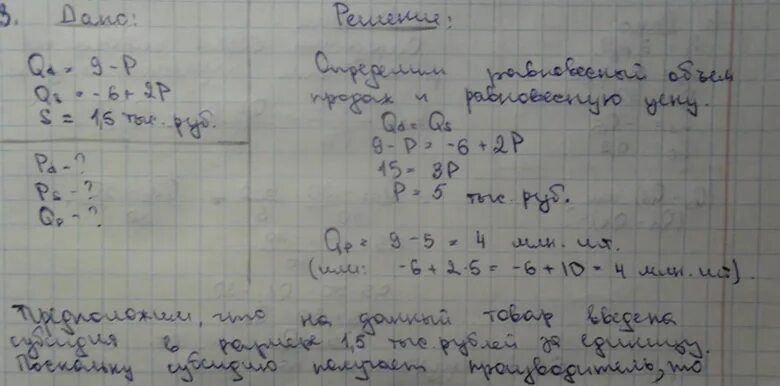 3. Дано:
Qd = 9-P
Qs = -6+2P
S = 1,5 тыс. руб.
Pd - ?
Ps - ?
Qp - ?
Решение:
Определим равновесный объем
продаж и равновесную цену.
Qd = Qs
9-P = -6+2P
15 = 3P
P = 5 тыс. руб.
Qp = 9-5 = 4 млн. шт.
(или: -6+2·5 = -6+10 = 4 млн. шт).
Предположим, что на данный товар введена
субсидия в размере 1,5 тыс рублей за единицу.
Поскольку субсидию получает производитель, то